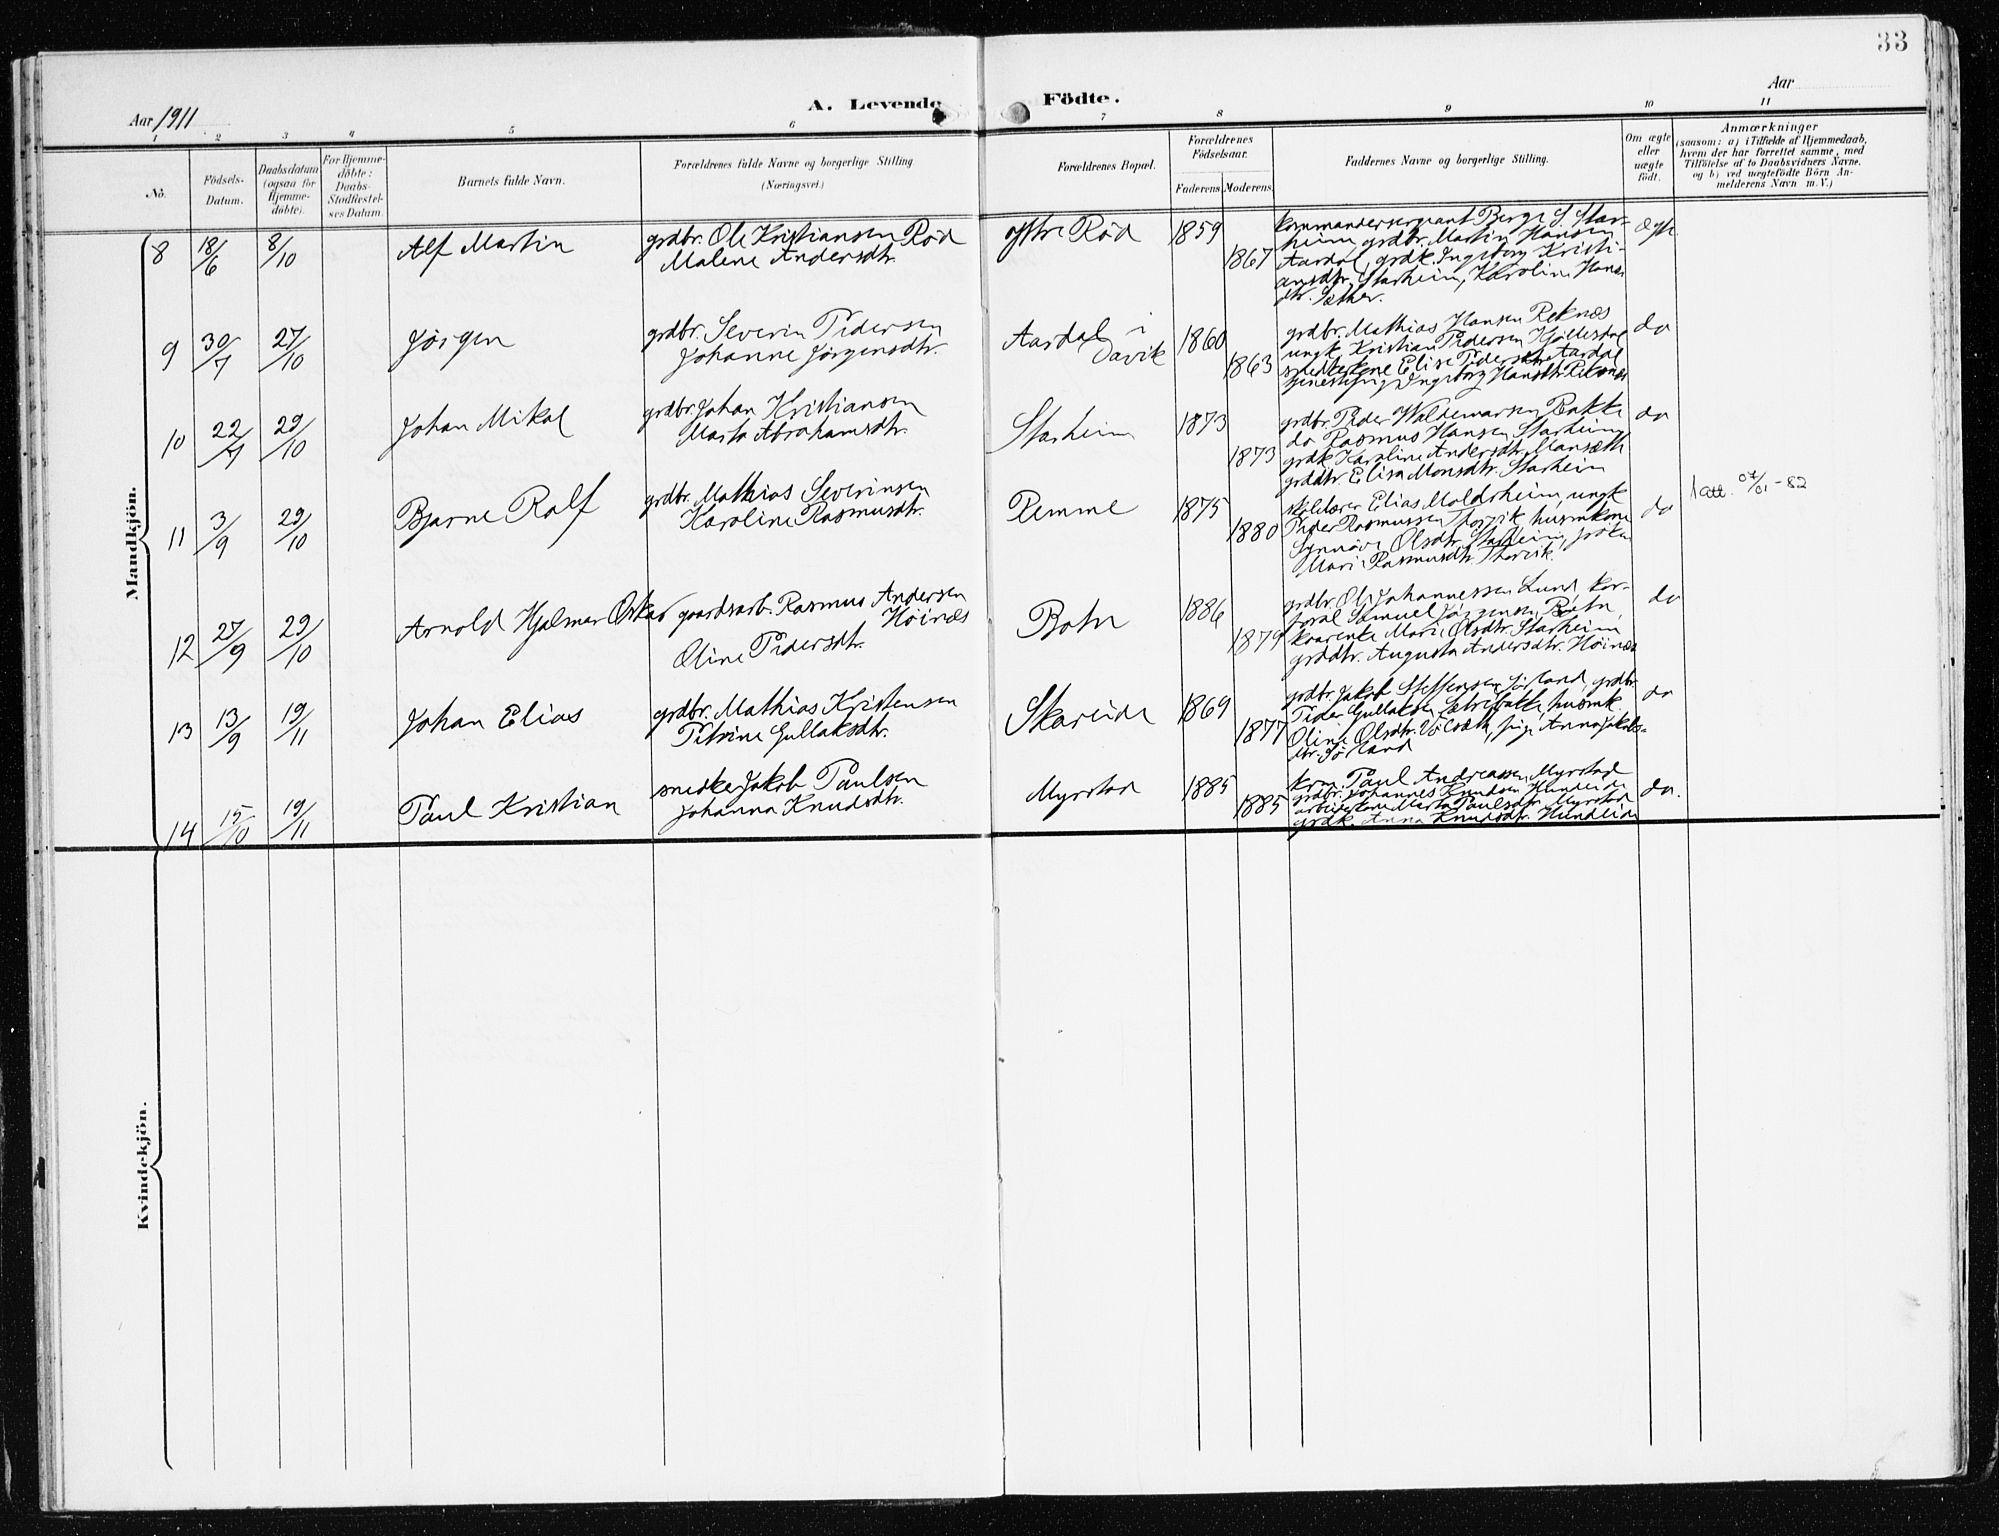 33
Aar 1911
A. Levende Födte.
Aar
1 2 3 4 5 6 7 8 9 10 11
No.
Födsels-Datum.
Daabsdatum (ogsaa for Hjemme-döbte).
For Hjemme-döbte: Daabs-Stadfæstel-ses Datum.
Barnets fulde Navn.
Forældrenes fulde Navne og borgerlige Stilling
(Næringsvei.)
Forældrenes Bopæl.
Forældrenes Fødselsaar.
Faderens. Moderens.
Faddernes Navne og borgerlige Stilling.
Om ægte eller uægte födt.
Anmærkninger
(saasom: a) i Tilfælde af Hjemmedaab,
hvem der har forrettet samme, med
Tilföielse af to Daabsvidners Navne.
og b) ved uægtefödte Börn An-
melderens Navn m. V.)
Mandkjön.
8 18/6 8/10 Alf Martin
grdbr. Ole Kristiansen Röd
Malene Andersdtr.
Ytre Röd 1859 1867
kommandersergeant Berge S. Star-
heim, grdbr. Martin Hansen
Aardal, grdk. Ingeborg Kristi-
ansdtr. Starheim, Karoline Hans
dtr. Sæther.
Ægte
9 30/7 27/10 Jörgen
grdbr. Severin Pedersen
Johanne Jörgensdtr.
Aardal i
Davik
1860 1863
grdbr. Mathias Hansen Reknæs
ungk. Kristian Pedersen Hjöllestad
snedkerkone Elise Pedersdtr Aardal
tjenestepig Ingeborg Hansdtr. Reknæs
do
10 22/7 29/10 Johan Mikal
grdbr. Johan Kristiansen
Marta Abrahamsdtr.
Starheim 1873 1873
grdbr. Peder Waldemarsen Bakke
do Rasmus Hansen Starheim
grdk. Karoline Andersdtr. Mansæth
grddtr. Elisa Monsdtr. Starheim
do
11 3/9 29/10 Bjarne Rolf
grdbr. Mathias Severinsen
Karoline Rasmusdtr.
Remme 1875 1880
skolelærer Elias Maldsheim, ungk
Peder Rasmussen Thorvik, husmkone
Synnöve Olsdtr. Starheim, fröken
Marie Rasmusdtr. Thorvik.
do
1 att. 07/01-82
12 27/9 29/10 Arnold Hjalmar Oskar
gaardsarb. Rasmus Andersen
Höinæs
Oline Pedersdtr.
Botn 1886 1879
grdbr. Ole Johannessen Lund, kor-
poral Samuel Jörgensen Botn,
kaarenke Marie Olsdtr. Starheim
grddtr. Augusta Andersdtr. Höinæs
do
13 13/9 19/11 Johan Elias
grdbr. Mathias Kristensen
Petrine Gullaksdtr.
Skareide 1869 1877
grdbr. Jakob Steffensen Sörland, grdbr.
Peder Gullaksen husmk.
Oline Olsdtr. pige Anna Jakobs-
dtr. Sörland
do
14 15/10 19/11 Paul Kristian
snedker Jakob Paulsen
Johanna Knudsdtr.
Myrstad 1885 1885
Paul Andreassen Myrstad
grdbr. Johannes Knudsen Hundeide
arbeiderkone Marta Paulsdtr. Myrstad
grdk. Anna Knudsdtr. Hundeide
do.
Kvindekjön.